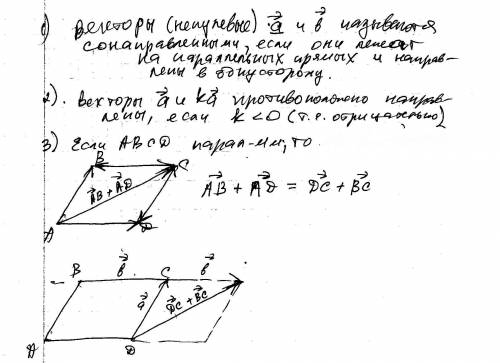 1) Векторы (ненулевые) a⃗ и b⃗ называются
сонаправленными, если они лежат
на параллельных прямых и направ-
лены в одну сторону.
2). Векторы a⃗ и ka⃗ противоположно направ-
лены, если k < 0 (т.е. отрицательно)
3) Если ABCD парал-мм, то
B C
AB⃗ + AD⃗
AB⃗ + AD⃗ = DC⃗ + BC⃗
A D
B b⃗ C b⃗
a⃗ DC⃗ + BC⃗
A D